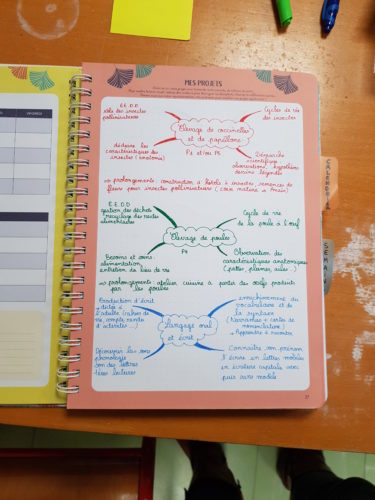 MES PROJETS
E.E.D.D
rôle des insectes
pollinisateurs
Cycles de vie
des insectes
Elevage de coccinelles
et de papillons
P3 et/ou P5
déduire les
caractéristiques des
insectes (anatomie)
Démarche
scientifique
observations, hypothèses
dessins légendés
=> prolongements: construction d'hôtels à insectes, semences de
fleurs pour insectes pollinisateurs (
E.E.D.D
gestion des déchets
recyclage des restes
alimentaires
Cycle de vie
de la poule à l'œuf
Elevage de poules
P4
Besoins et soins:
alimentation,
entretien du lieu de vie
Observation des
caractéristiques anatomiques
(pattes, plumes, ailes...)
=> prolongements: atelier cuisine à partir des œufs produits
par les poules
Production d'écrit
+ dictée à
l'adulte (cahier de
vie, compte rendu
d'activités ...)
enrichissement du
vocabulaire et de
la syntaxe
(Narramus + cartes de
nomenclature)
+ Apprendre à raconter
Langage oral
et écrit
Découvrir les sons
phonologie
son des lettres
1ères lectures
Connaitre son prénom
l'écrire en lettres mobiles
en écriture capitale avec
puis sans modèle
27
CALENDRIER